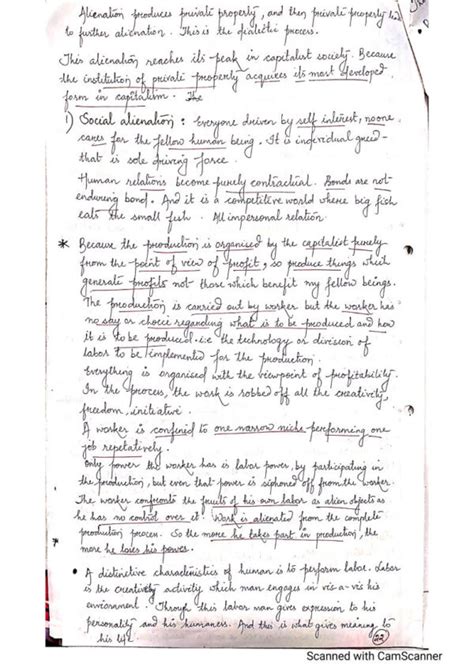 Alienation produces private property, and then private property
to further alienation. This is the dialectic process.
This alienation reaches its peak in capitalist society. Because
the institution of private property acquires its most developed
form in capitalism. The
1) Social alienation : Everyone driven by self interest, no one
cares for the fellow human being. It is individual greed
that is sole driving force.
Human relations become purely contractual. Bonds are not
enduring bond. And it is a competitive world where big fish
eats the small fish. All impersonal relation.
* Because the production is organised by the capitalist purely
from the point of view of profit, so produce things which
generate profits not those which benefit my fellow beings.
The production is carried out by worker but the worker has
no say or choice regarding what is to be produced and how
it is to be produced. i.e the technology or division of
labor to be implemented for the production.
Everything is organised with the viewpoint of profitability.
In the process, the work is robbed off all the creativity,
freedom, initiative.
A worker is confined to one narrow niche performing one
job repetatively.
Only power the worker has is labor power, by participating in
the production, but even that power is siphoned off from the worker.
The worker confronts the fruits of his own labor as alien objects as
he has no control over it. Work is alienated from the complete
production process. So the more he takes part in production, the
more he loses his power.
• A distinctive characteristics of human is to perform labor. Labor
is the creativity activity which man engages in vis-a-vis his
environment. Through this labor man gives expression to his
personality and his humaness. And this is what gives meaning to
his life.
22
Scanned with CamScanner